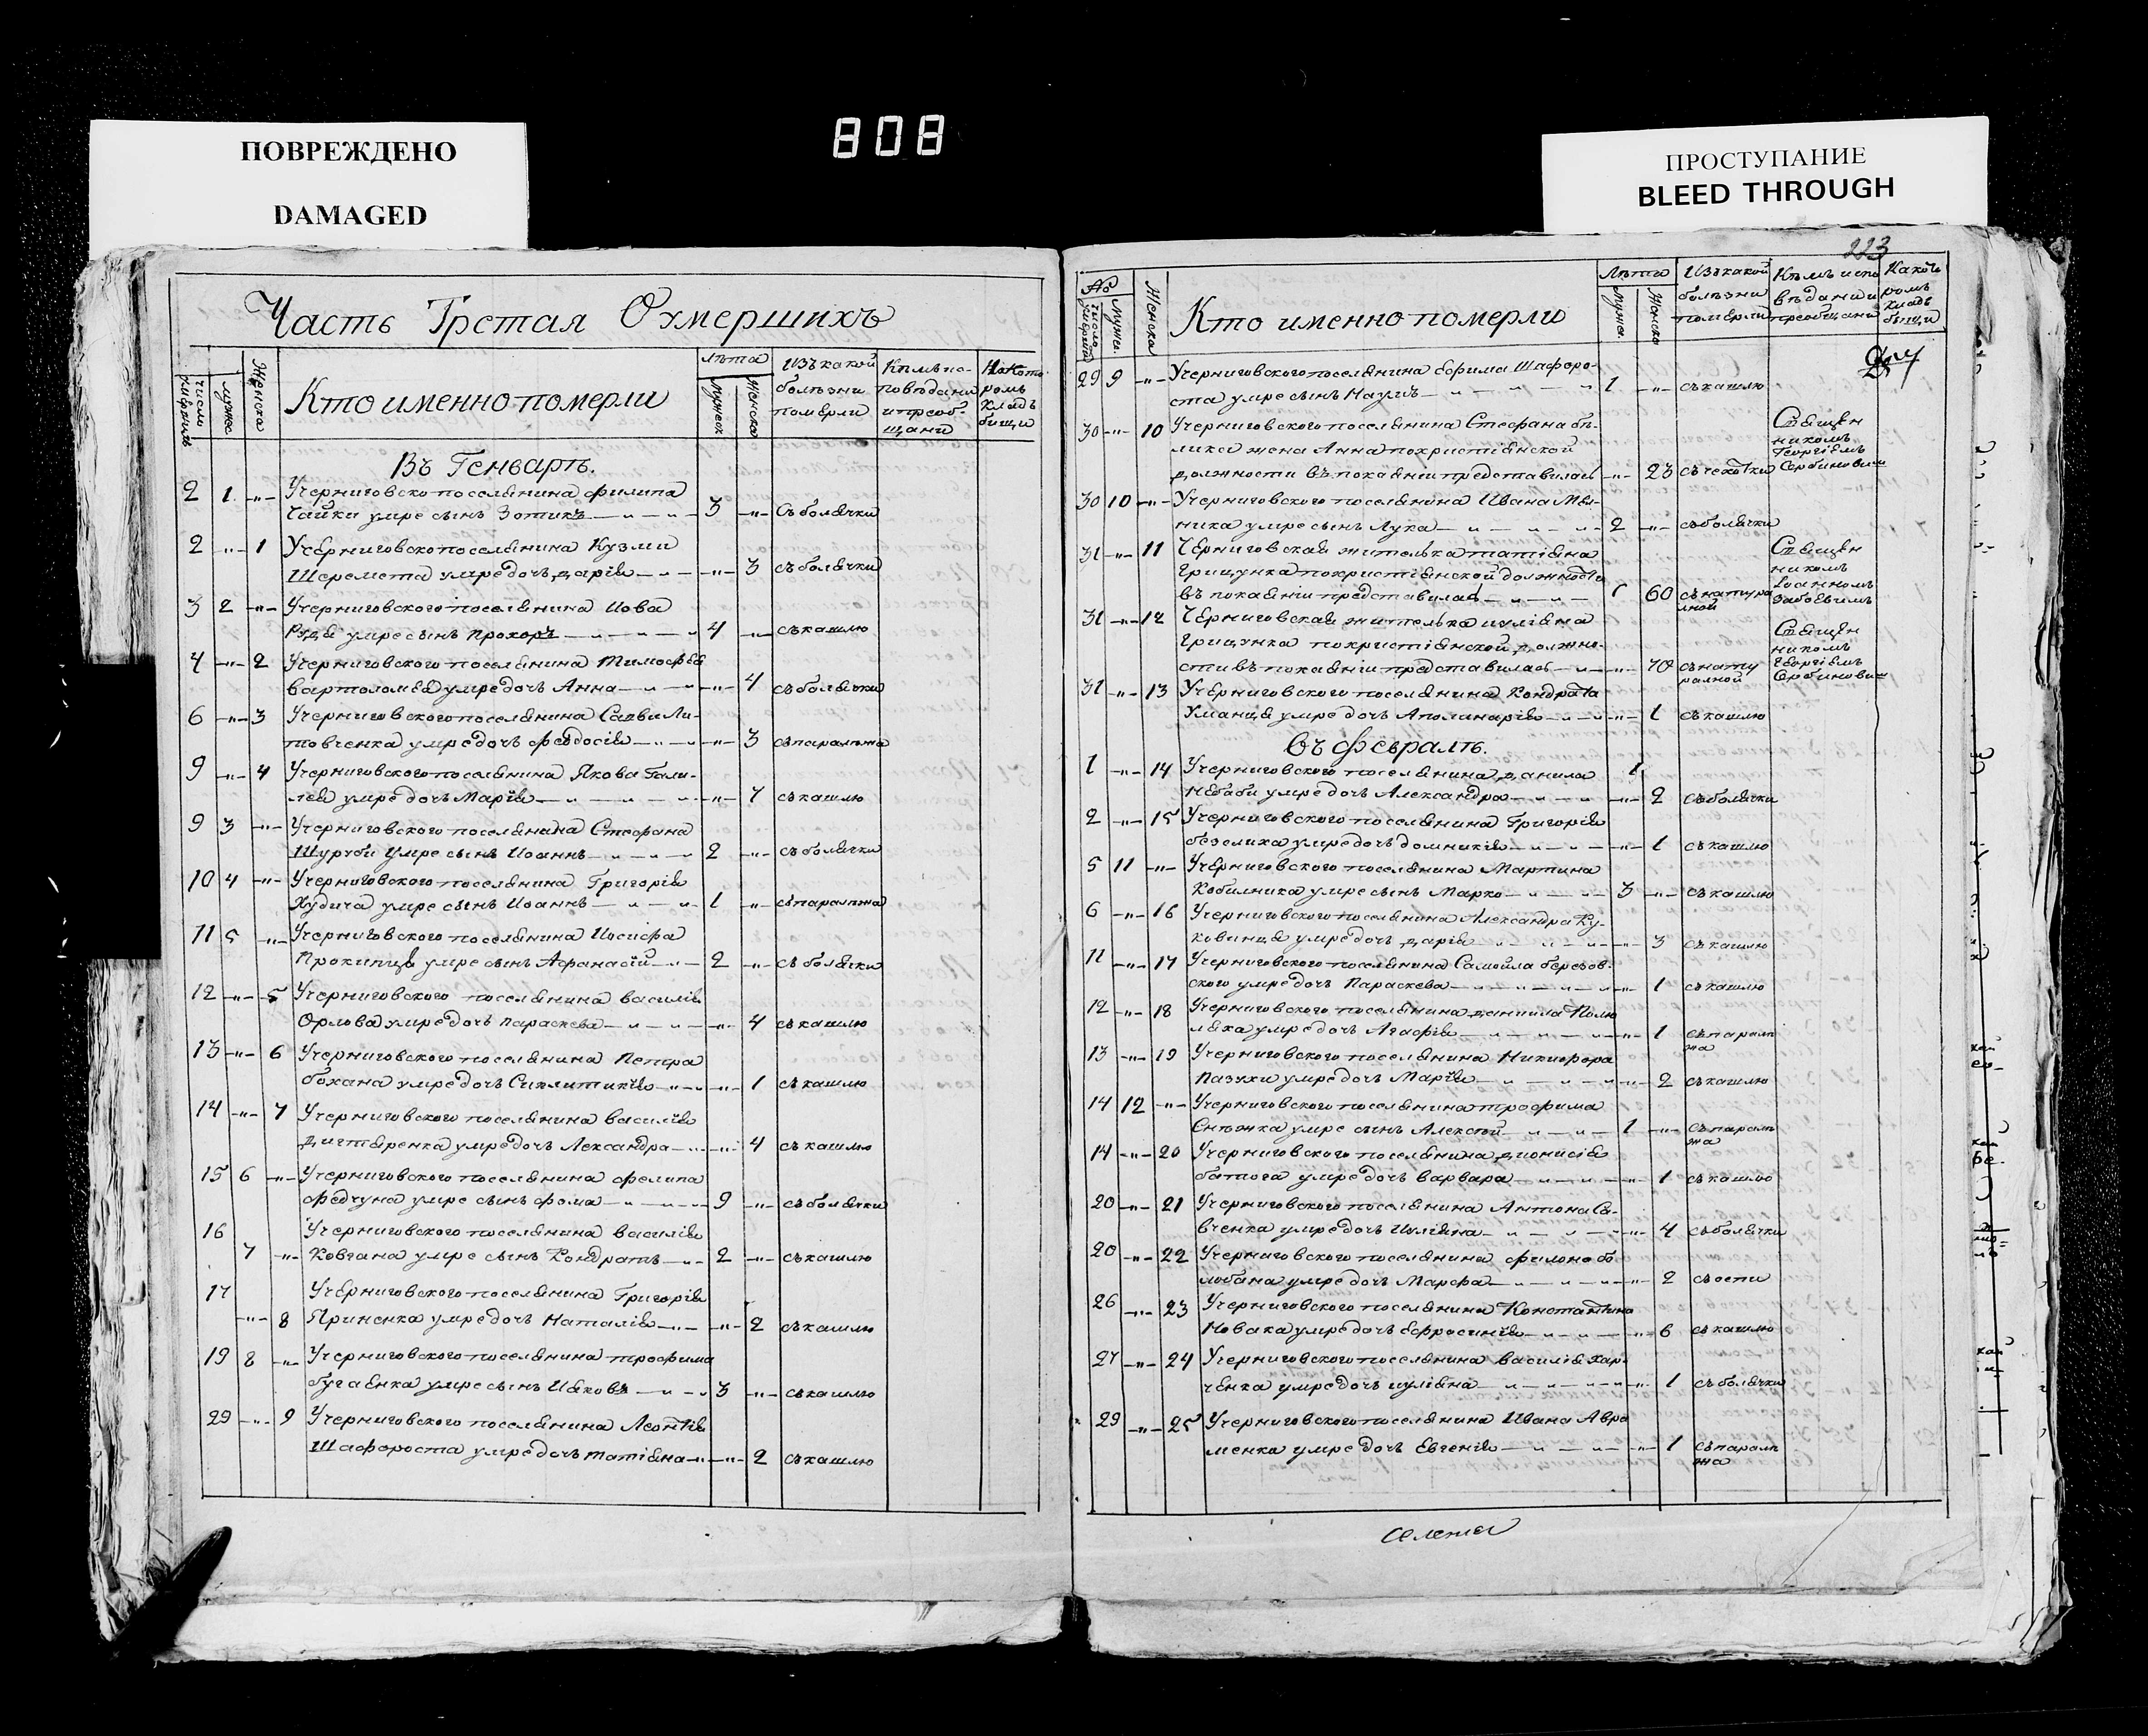 808
ПОВРЕЖДЕНО
DAMAGED
ПРОСТУПАНИЕ
BLEED THROUGH
Часть Третая Оумершихъ
число умершихъ
мужес
Женска
Кто именно померли
лѣта
мужеск
Женска
Изъ какой болѣзни померли
Кѣмъ исповѣданы и преобщаны
На которомъ кладбищи
Въ Генварѣ.
2 1 -"- Учерниговско поселянина филипа
Чайки умре сынъ Зотикъ 3 -"- съ болячки
2 -"- 1 Учерниговско поселянина Кузми
Шеремета умре дочъ дарія -"- 3 съ болячки
3 2 -"- Учерниговского поселянина Иова
Рудя умре сынъ прохоръ 4 -"- съ кашлю
4 -"- 2 Учерниговского поселянина Тимофея
вартоломея умре дочъ Анна -"- 4 съ болячки
6 -"- 3 Учерниговского поселянина Савви Ли-
товченка умре дочъ феодосія -"- 3 съ паралѣжа
9 -"- 4 Учерниговского поселянина Якова Гали-
лея умре дочъ Марія -"- 7 съ кашлю
9 3 -"- Учерниговского поселянина Стефана
Шуруби умре сынъ Иоаннъ 2 -"- съ болячки
10 4 -"- Учерниговского поселянина Григорія
Худича умре сынъ Иоаннъ 1 -"- съ паралѣжа
11 5 -"- Учерниговского поселянина Иосифа
Прокипця умре сынъ Афанасій 2 -"- съ болячки
12 -"- 5 Учерниговского поселянина василія
Орлова умре дочъ параскева -"- 4 съ кашлю
13 -"- 6 Учерниговского поселянина Петра
бохана умре дочъ Сиклитикія -"- 1 съ кашлю
14 -"- 7 Учерниговского поселянина василія
дигтяренка умре дочъ Лександра -"- 4 съ кашлю
15 6 -"- Учерниговского поселянина филипа
федчуна умре сынъ фома 9 -"- съ болячки
16 Учерниговского поселянина василія
7 -"- Ковгана умре сынъ Кондратъ 2 -"- съ кашлю
17 Учерниговского поселянина Григорія
-"- 8 Яринека умре дочъ Наталія -"- 2 съ кашлю
19 8 -"- Учерниговского поселянина трофима
бугаенка умре сынъ Иаковъ 3 -"- съ кашлю
29 -"- 9 Учерниговского поселянина Леонтія
Шафороста умре дочъ татіяна -"- 2 съ кашлю
223
№
число умершихъ
мужес.
Женска
Кто именно померли
Лѣта
мужеск.
Женска
Изъ какой болѣзни померли
Кѣмъ исповѣданы и преобщаны
На какомъ кладбищи
29 9 -"- Учерниговского поселянина Ефима Шафоро-
ста умре сынъ Наумъ 1 -"- съ кашлю
30 -"- 10 Учерниговского поселянина Стефана бѣ-
лика жена Анна по християнской
должности въ покаяніи представилась -"- 23 съ чехотки
Священникомъ Георгіемъ Сербиновим
30 10 -"- Учерниговского поселянина Ивана Мѣл-
ника умре сынъ Лука 2 -"- съ болячки
31 -"- 11 Черниговская жителька татіяна
Грицунка по християнской должности
въ покаяніи представилась 60 съ натуралной
Священникомъ Иоанномъ Забоевимъ
31 -"- 12 Черниговская жителька иуліяна
Грицунка по християнской должно-
сти въ покаяніи представилась -"- 70 съ натуралной
Священникомъ Георгіемъ Сербиновим
31 -"- 13 Учерниговского поселянина Кондрата
Уманця умре дочъ Аполинарія -"- 1 съ кашлю
Въ февралѣ.
1 -"- 14 Учерниговского поселянина данила
Небаби умре дочъ Александра -"- 2 съ болячки
2 -"- 15 Учерниговского поселянина Григорія
безелика умре дочъ домникія -"- 1 съ кашлю
5 11 -"- Учерниговского поселянина Мартина
Кобилника умре сынъ Марко 3 -"- съ кашлю
6 -"- 16 Учерниговского поселянина Александра Ку-
ковинця умре дочъ дарія -"- 3 съ кашлю
11 -"- 17 Учерниговского поселянина Самойла березов-
ского умре дочъ Параскева -"- 1 съ кашлю
12 -"- 18 Учерниговского поселянина даниила Полю
ляха умре дочъ Агафія -"- 1 съ паралѣжа
13 -"- 19 Учерниговского поселянина Никифора
пазухи умре дочъ Марія -"- 2 съ кашлю
14 12 -"- Учерниговского поселянина трофима
Снѣжка умре сынъ Алексѣй 1 -"- съ паралѣжа
14 -"- 20 Учерниговского поселянина дионисія
батога умре дочъ варвара -"- 1 съ кашлю
20 -"- 21 Учерниговского поселянина Антона Са-
вченка умре дочъ Иуліяна -"- 4 съ болячки
20 -"- 22 Учерниговского поселянина филона бо
любана умре дочъ Марфа -"- 2 съ оспи
26 -"- 23 Учерниговского поселянина Константина
Новака умре дочъ Ефросинія -"- 6 съ кашлю
27 -"- 24 Учерниговского поселянина василія хар-
ченка умре дочъ иуліяна -"- 1 съ болячки
29 -"- 25 Учерниговского поселянина Ивана Авра
менка умре дочъ Евгенія -"- 1 съ паралѣжа